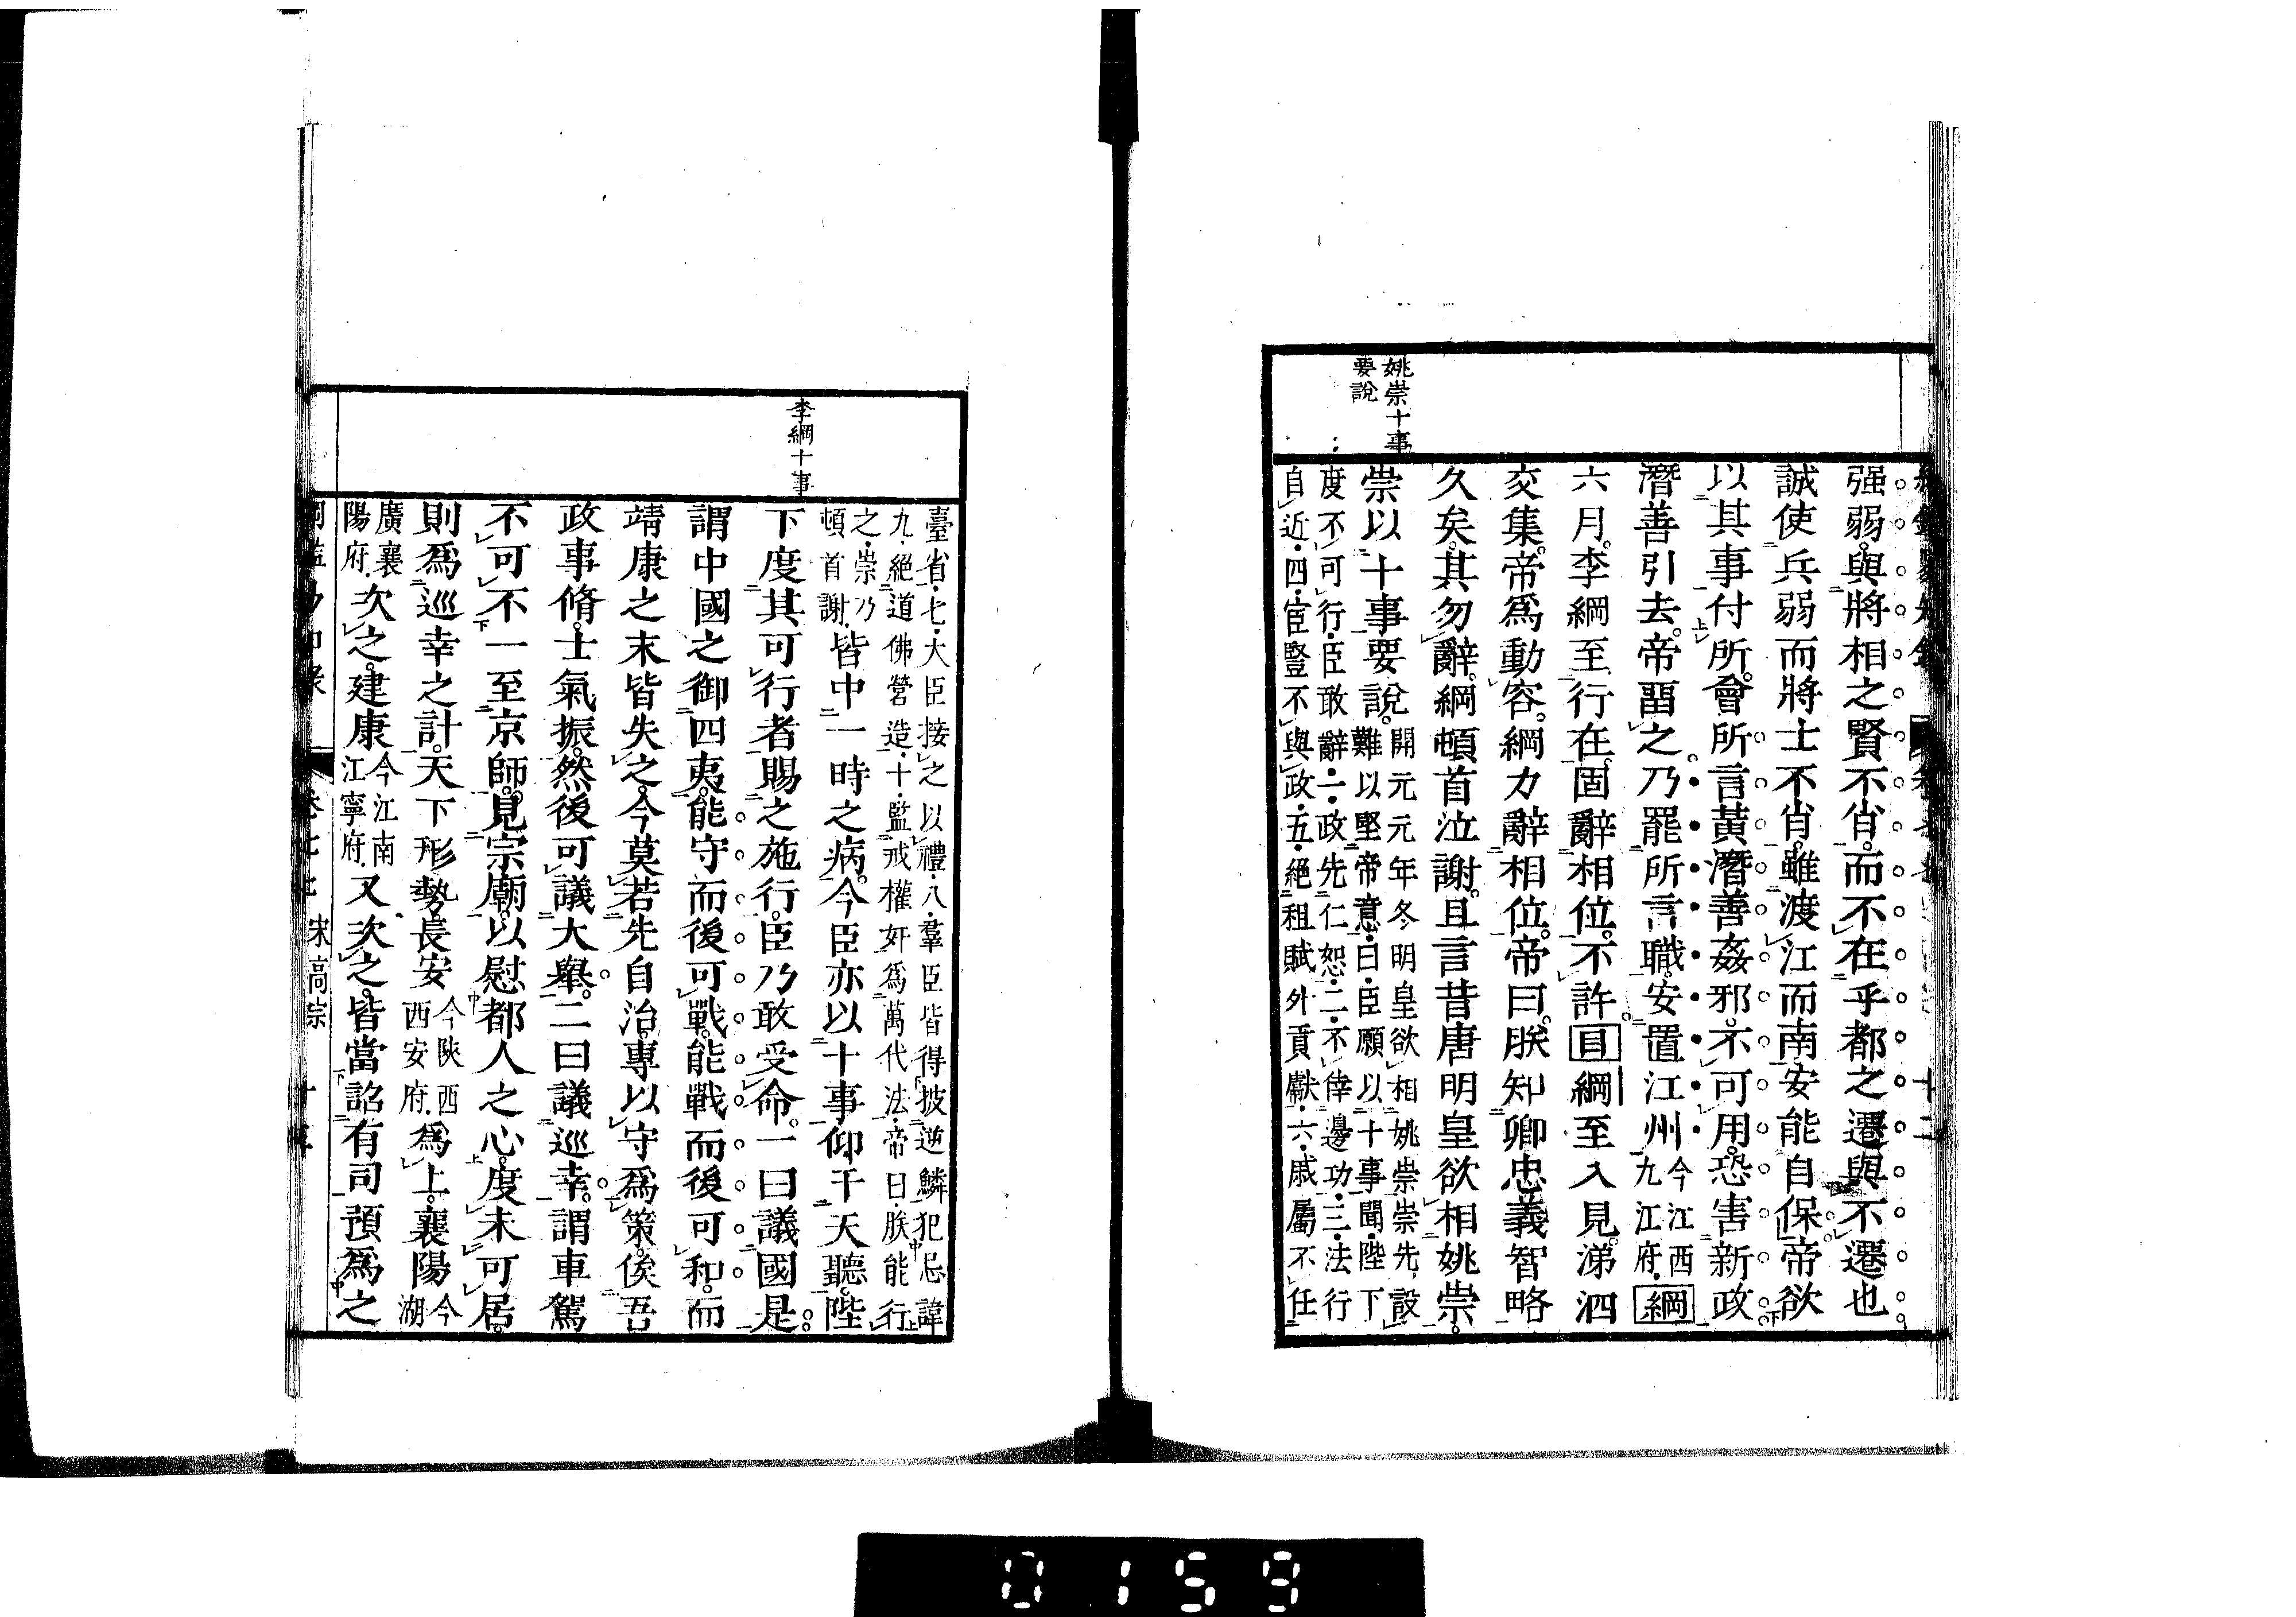 姚崇十事
要說
强弱。與將相之賢不肖。而不在乎都之遷與不遷也
誠使兵弱而將士不肖。雖渡江而南。安能自保。帝欲
以其事付所。會所言黃潛善姦邪。不可用。恐害新政
潛善引去。帝畱之。乃罷所言職。安置江州今江西九江府。綱
六月。李綱至行在。固辭相位。不許。目綱至入見。涕泗
交集。帝爲動容。綱力辭相位。帝曰。朕知卿忠義智略
久矣。其勿辭。綱頓首泣謝。且言昔唐明皇欲相姚崇。
崇以十事要說。開元元年冬。明皇欲相姚崇。崇先設難以堅帝意。曰。臣願以十事聞。陛下
度不可行。臣敢辭。一。政先仁恕。二。不倖邊功。三。法行
自近。四。宦豎不與政。五。絕租賦外貢獻。六。戚屬不任
李綱十事
臺省。七。大臣接之以禮。八。羣臣皆得披逆鱗犯忌諱
九。絕道佛營造。十。監戒權奸爲萬代法。帝曰。朕能行
之。崇乃頓首謝。皆中一時之病。今臣亦以十事仰干天聽。陛
下度其可行者。賜之施行。臣乃敢受命。一曰議國是。
謂中國之御四夷。能守而後可戰。能戰而後可和。而
靖康之末皆失之。今莫若先自治。專以守爲策。俟吾
政事脩。士氣振。然後可議大舉。二曰議巡幸。謂車駕
不可不一至京師。見宗廟。以慰都人之心。度未可居。
則爲巡幸之計。天下形勢。長安今陝西西安府。爲上。襄陽今湖
廣襄陽府。次之。建康今江南江寧府。又次之。皆當詔有司預爲之
宋高宗
0159